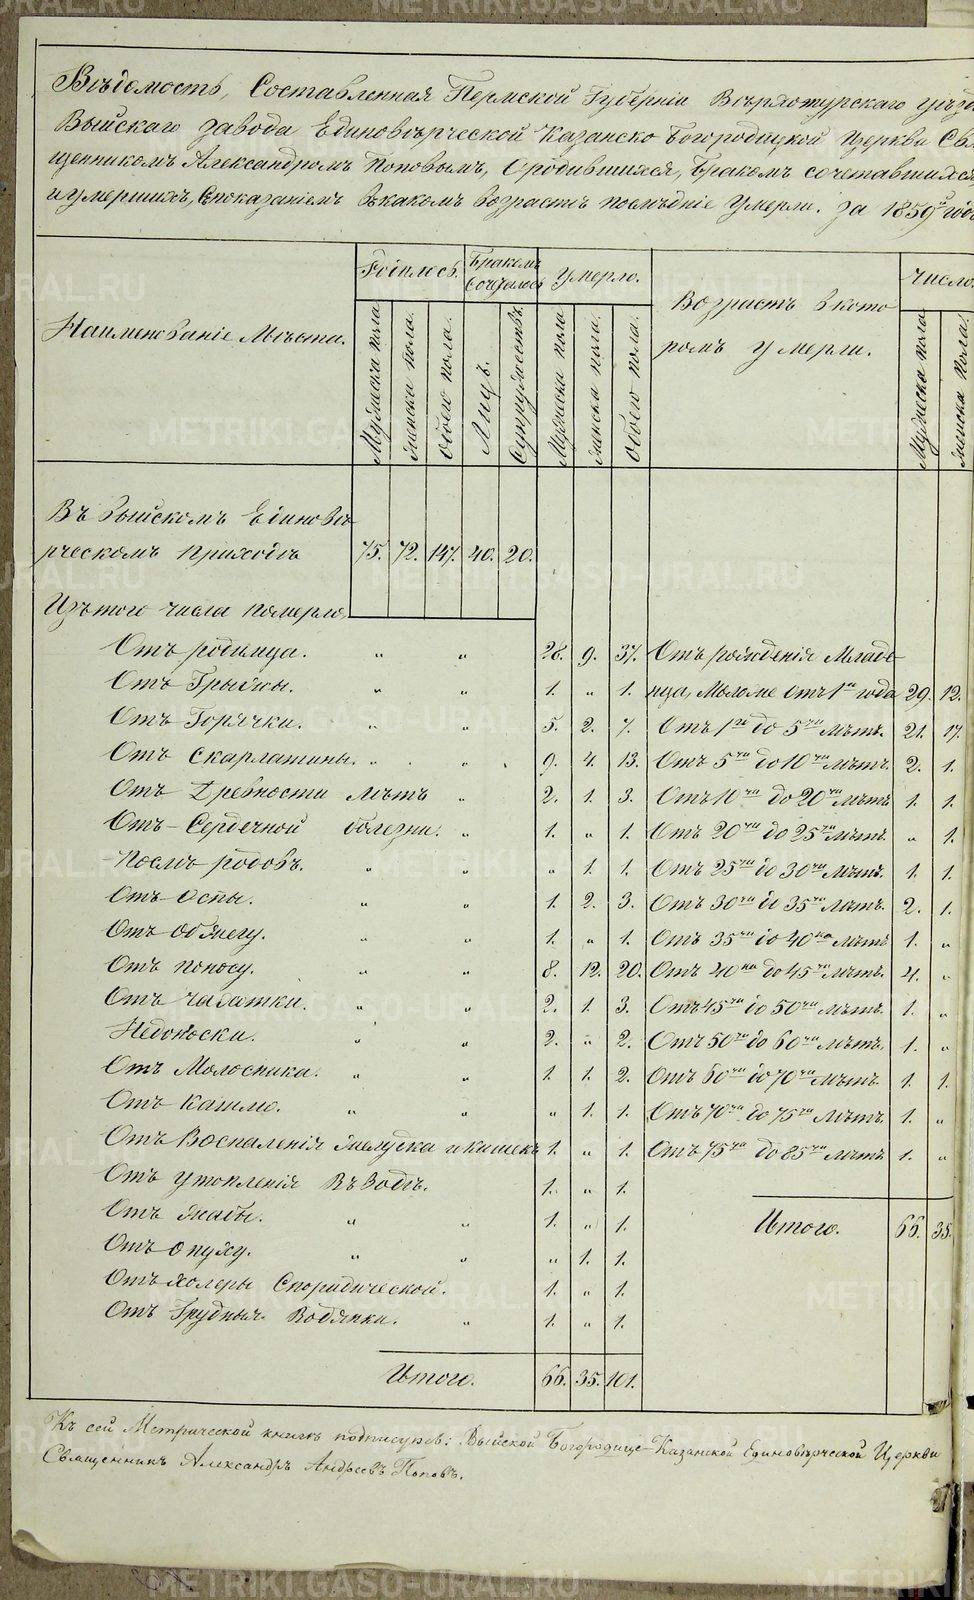 Вѣдомость, Составленная Пермской Губерніи Верхотурскаго уѣзд
Выйскаго завода Единовѣрческой Казанско Богородицкой Церкви Свя
щенникомъ Александромъ Поповымъ, о родившихся, Бракомъ сочетавшихся
и умершихъ, съ показаніемъ въ какомъ возрастѣ послѣдніе умерли. За 1859й годъ
Наименованіе Мѣста.
Родилось.
Бракомъ Сочеталось
Умерло.
Возрастъ въ кото
ромъ умерли.
Число
Мужеска пола
женска пола.
обоего пола.
Лицъ.
Супружествъ.
Мужеска пола
женска пола.
обоего пола.
Мужеска пола
женска пола.
Въ Выйскомъ Единовѣ
рческомъ приходѣ 75. 72. 147. 40. 20.
Изъ того числа померло
Отъ родимца. " " 28. 9. 37. Отъ рожденія Младе
Отъ Грыжи. " " 1. " 1. нца, Моложе отъ 1го года 29. 12.
Отъ Горячки. " " 5. 2. 7. Отъ 1го до 5ти лѣтъ. 21. 17.
Отъ Скарлатины. " " 9. 4. 13. Отъ 5ти до 10ти лѣтъ. 2. 1.
Отъ Древности лѣтъ " 2. 1. 3. Отъ 10ти до 20ти лѣтъ 1. 1.
Отъ Сердечной болезни. " 1. " 1. Отъ 20ти до 25ти лѣтъ. " 1.
Послѣ родовъ. " " " 1. 1. Отъ 25ти до 30ти лѣтъ. 1. 1.
Отъ Оспы. " " 1. 2. 3. Отъ 30ти до 35ти лѣтъ. 2. 1.
Отъ Обжегу. " " 1. " 1. Отъ 35ти до 40ка лѣтъ 1. "
Отъ поносу. " " 8. 12. 20. Отъ 40ка до 45ти лѣтъ. 4. "
Отъ чахотки. " " 2. 1. 3. Отъ 45ти до 50ти лѣтъ. 1. "
Недоноски. " " 2. " 2. Отъ 50ти до 60ти лѣтъ. 1. "
Отъ Молосника. " " 1. 1. 2. Отъ 60ти до 70ти лѣтъ. 1. 1.
Отъ кашлю. " " " 1. 1. Отъ 70ти до 75ти лѣтъ 1. "
Отъ Воспаленія желудка и кишекъ 1. " 1. Отъ 75ти до 85ти лѣтъ 1. "
Отъ утопленія Въ Водѣ. 1. " 1.
Отъ жабы. " " 1. " 1. Итого. 66. 35.
Отъ опуху. " " " 1. 1.
Отъ холеры Споридической. 1. " 1.
Отъ Грудныя Водянки. " 1. " 1.
Итого. 66. 35. 101.
Къ сей Метрической книгѣ подписуюсь: Выйской Богородице-Казанской Единовѣрческой Церкви
Священникъ Александръ Андреевъ Поповъ.
METRIKI.GASO-URAL.RU